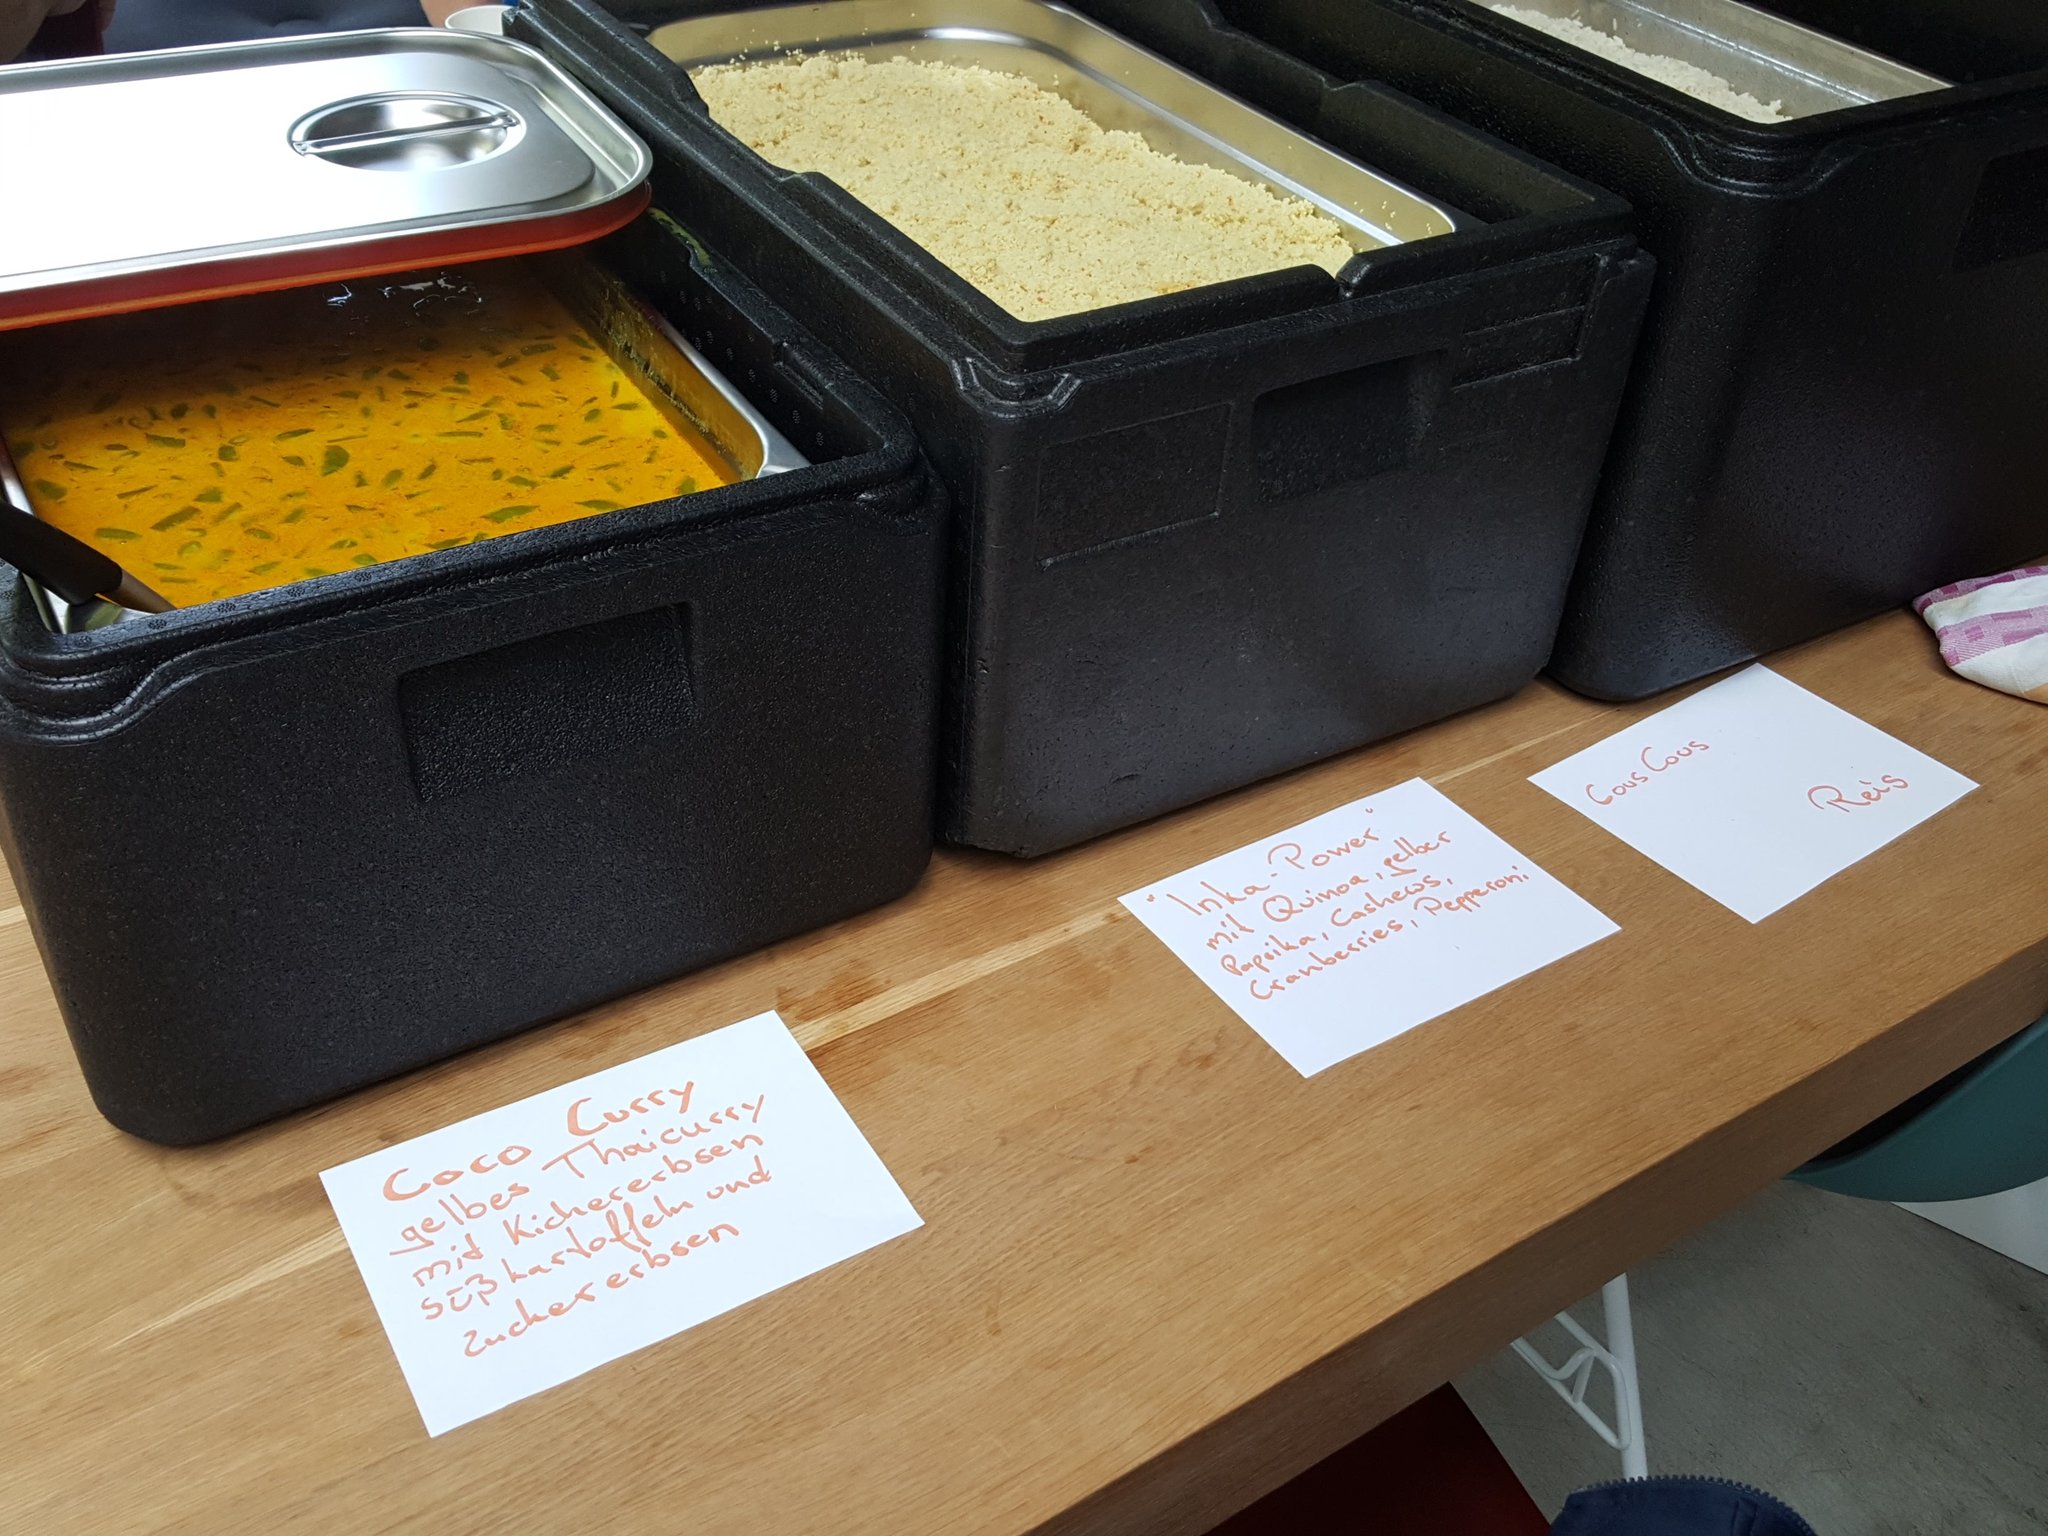 Coco Curry
gelbes Thaicurry
mit Kichererbsen
süßkartoffeln und
Zuckererbsen
"Inka-Power"
mit Quinoa, gelber
Paprika, Cashews,
Cranberries, Pepperoni
CousCous
Reis